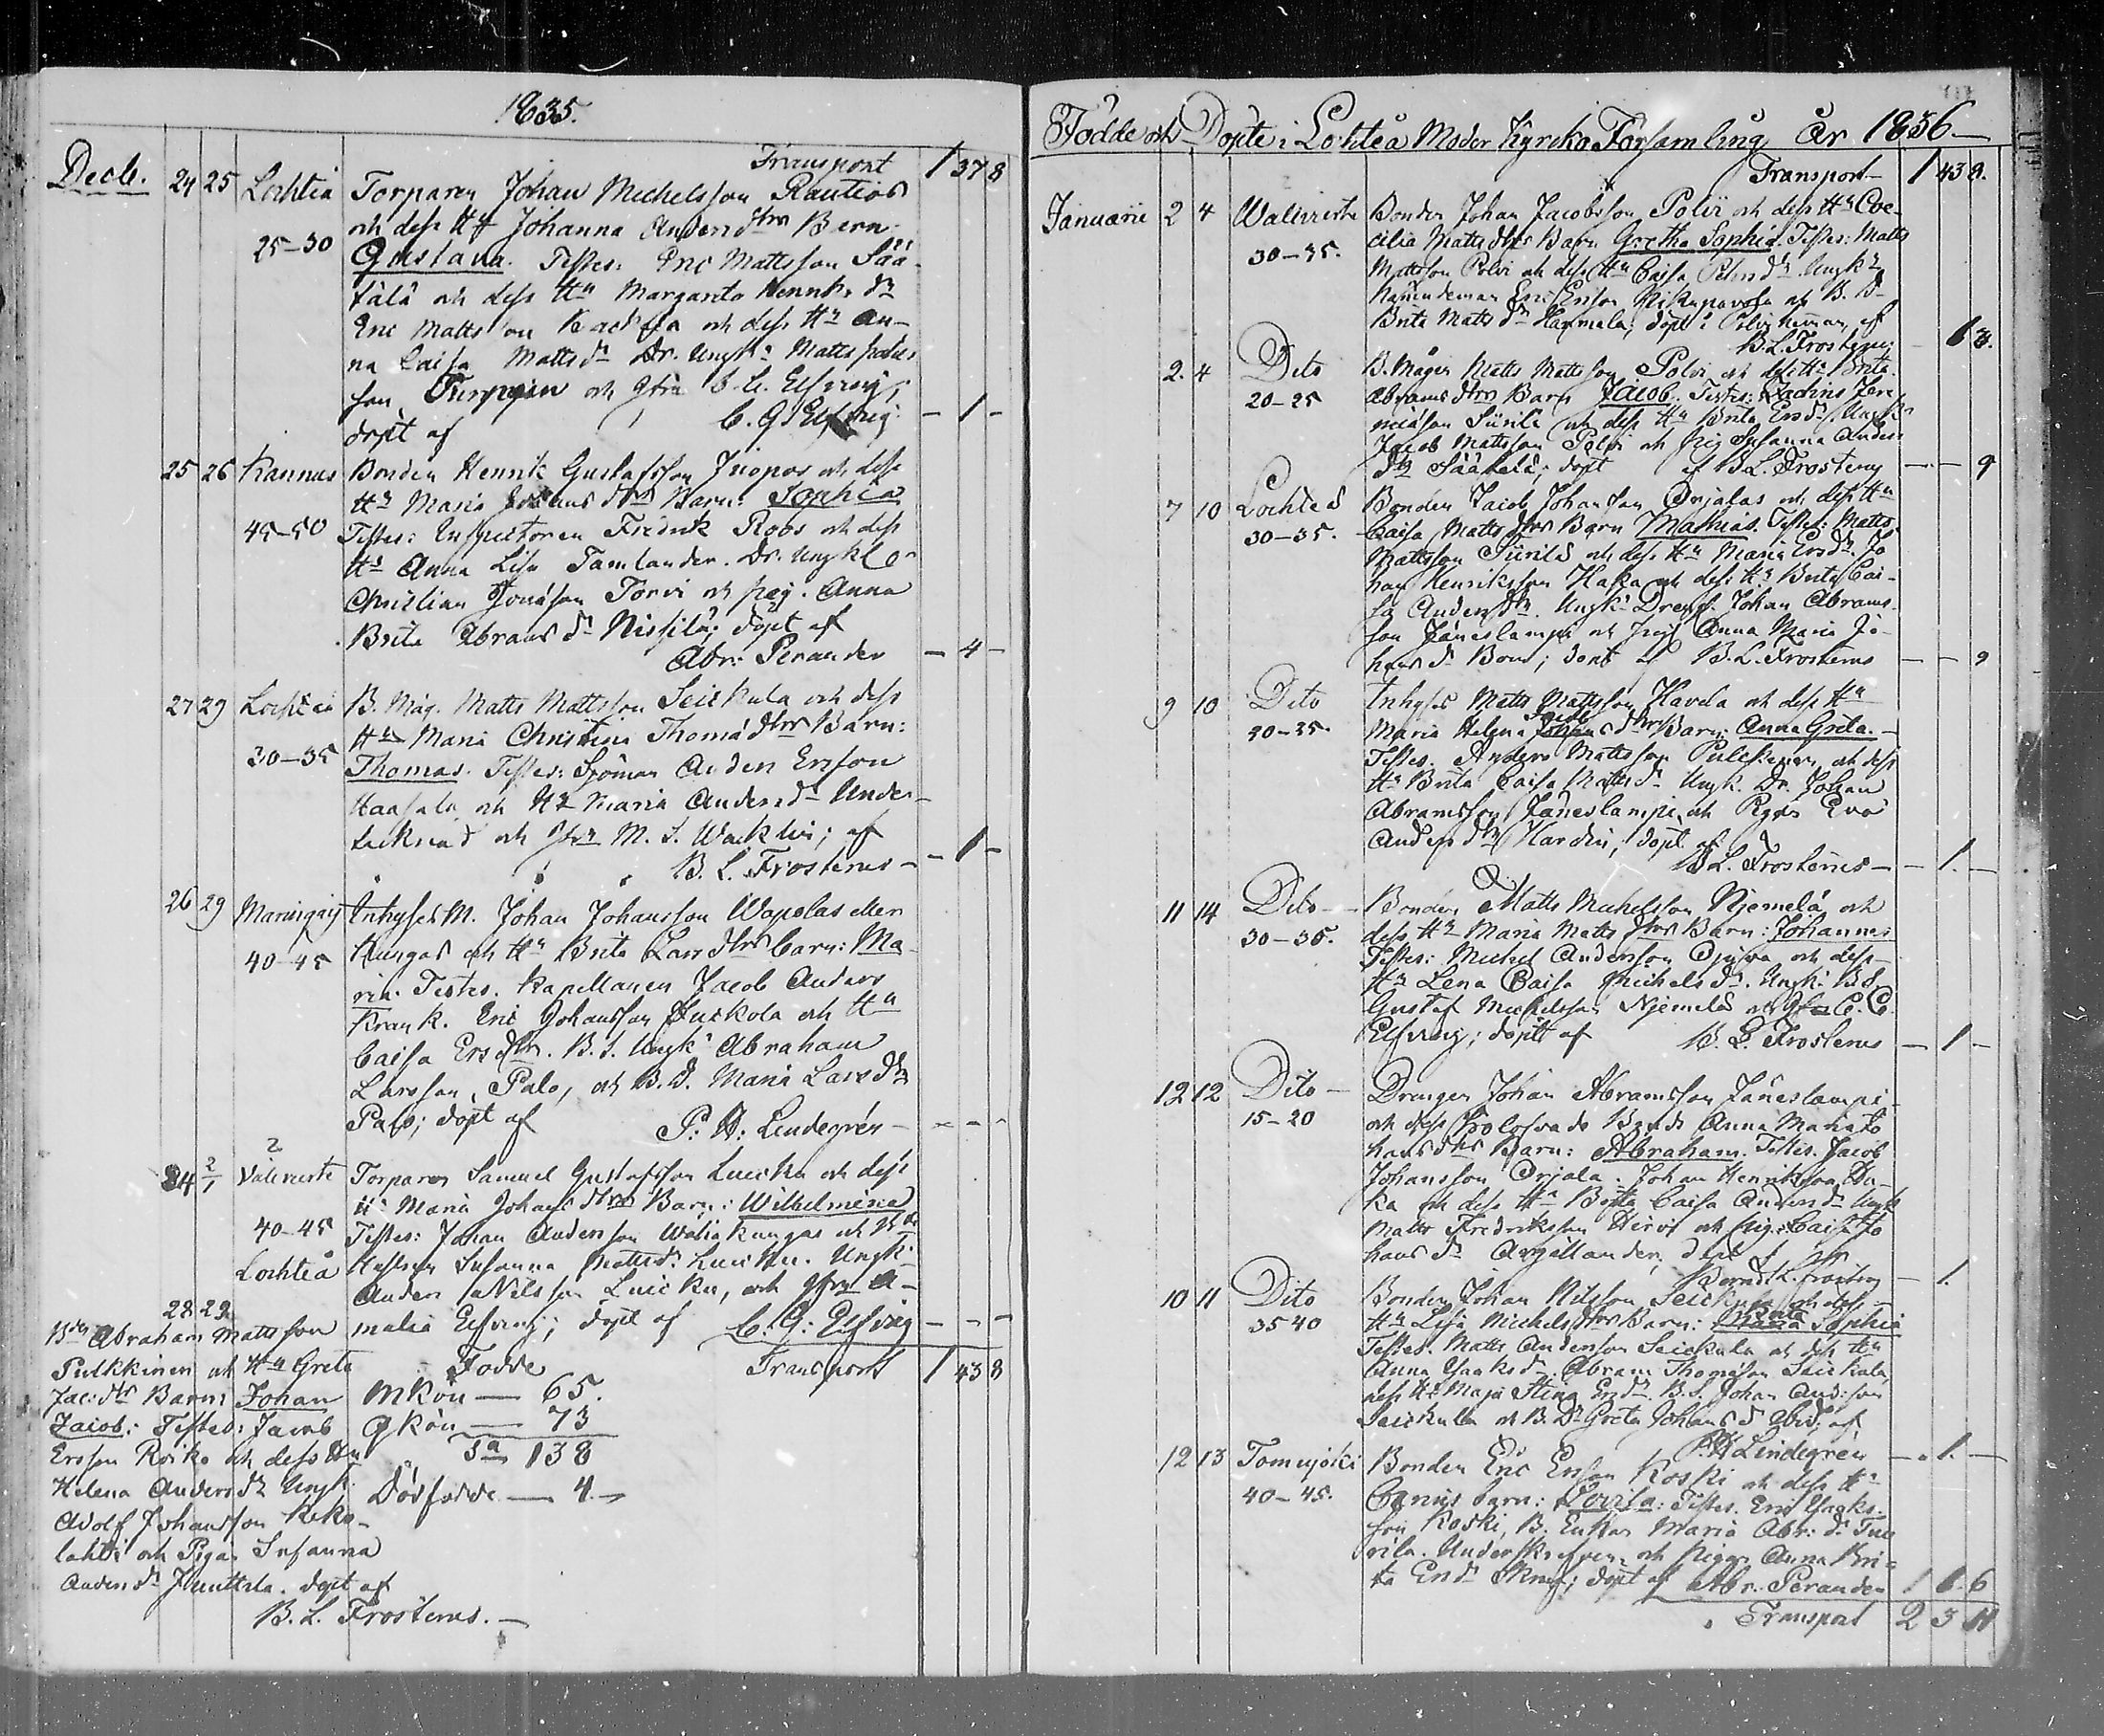 1835.
Transport 1 37 8
Decb. 24 25 Lochteå Torparen Johan Michelsson Rautios
och dess H:u Johanna Anders dtrs Barn
25-30 Gustava. Testes: Eric Mattsson Sää-
kälä och dess H:u Margareta Henriks dr
Eric Mattsson och dess H:u An-
na Caisa Matts dr Dr. Ungk: Matts
son och Jfru C. C. Elfving;
döpt af C. G. Elfving - 1 -
25 26 Kannus Bonden Henrik Gustafsson och dess
H:u Maria dtrs Barn: Sophia
45-50 Testes: Inspectoren Fredrik Roos och dess
H:u Anna Lisa Tamlander. Dr. Ungkl
Christian Jonasson Torvi och pig. Anna
Brita Abrams dr Nissilä; döpt af
Abr: Perander - 4 -
27 29 Lochteå B. Måg. Matts Mattsson Seikkula och dess
H:u Maria Christina Thomæ dtrs Barn:
30-35 Thomas. Testes: Sjöman Anders Ersson
Haasala och H:u Maria Anders dr Under-
teknad och Jfru M. S. Wacklin; af
B. L. Frosterus - - 1 -
26 29 Inhyses M. Johan Johansson Wapolas eller
Kungas och H:u Brita Lars dtrs barn: Ma-
40-45 ria. Testes. Kapellanen Jacob Anders
Krank. Eric Johansson Juckola och H:u
Caisa Ers dtr. B. S. Ungk: Abraham
Larsson Palo, och B. D. Maria Lars dr
Palo; döpt af P. H: Lindegrén - - - -
24 2/1 Torparen Samuel Gustafsson Luicka och dess
H:u Maria Johans dtrs Barn: Wilhelmina
40-45 Testes: Johan Andersson Walikangas och
Lochteå Hustrun Susanna Matts dr Luicku. Ungk:
Anders Nilsson Luicku, och Jfru A-
malia Elfving; döpt af C. G: Elfving - - -
28 29
Abraham Mattsson
Pulkkinen och H:u Greta
Jac: dtr Barn: Johan
Jacob: Testes: Jacob
Ersson Roiko och dess H:u
Helena Anders dr Ungk.
Adolf Johansson Keko-
lahti och Pigan Susanna
Anders dr Junttila. döpt af
B. L. Frosterus. -
Födde Transport 1 43 8
Mkön - 65.
Qkön - 73
S:a 138
Dödfödde - 4 -
Födde och Döpte i Lohteå Moder Kyrko Församling År 1836 -
Transport 1 43 8.
Januarii 2 4 Bonden Johan Jacobsson Polvi och dess H:u Cæ-
cilia Matts dtrs Barn Gretha Sophia. Testes: Matts
30-35. Mattsson Polvi och dess H:u Caisa Pehrs dr Ungk:
Nämndeman Eric Ersson och B. D.
Brita Matts dr Hannula; döpt i Polvi hemman af
B. L. Frosterus
2. 4 Dito B. Mågen Matts Mattsson Polvi och dess H:u Brita
20-25 Abrams dtrs Barn Jacob. Testes: Zachris Jere-
miasson Siirilä och dess H:u Brita Ers dr. Ungk:
Jacob Mattsson Polvi och pig Susanna Anders
dr Säätälä; döpt af B. L. Frosterus - - 9
7 10 Lochteå Bonden Jacob Johansson Orjalas och dess H:u
30-35. Caisa Matts dtrs Barn Mathias. Testes: Matts
Mattsson Siirilä och dess H:u Maria Ers dr. Jo
han Henriksson Haka och dess H:u Brita Cai-
sa Anders dr. Ungk: Dreng. Johan Abrams-
son Jäneslampi och pig Anna Maria Jo-
hans dr ; döpt af B. L. Frosterus - - 9
9 10 Dito Inhyses Matts Mattsson Havela och dess H:u
30-35. Maria Helena Jacobs dtrs Barn: Anna Greta. -
Testes. Anders Mattsson Pulckinen och dess
H:u Brita Caisa Matts dr Ungk. Dr. Johan
Abramsson Jäneslampi och Pigan Eva
Anders dr Hardin; döpt af
B. L. Frosterus - - 1. -
11 14 Dito - Bonden Matts Michelsson Njemelä och
30-35. dess H:u Maria Matts dtrs Barn: Johannes
Testes: Michel Andersson och dess
H:u Lena Caisa Michels dr. Ungk: B S.
Gustaf Michelsson Njemelä och Jfru C. C.
Elfving; döpt af B. L. Frosterus - 1 -
12 12 Dito - Drengen Johan Abramsson Jäneslampi
15-20 och dess Trolofvade Anna Maria Jo
hans dtrs Barn: Abraham. Testes. Jacob
Johansson Orjala. Johan Henriksson Ha-
ka och dess H:u Brita Caisa Anders dr Ungk
Matts Fredriksson Hirvi och pig: Caisa Jo
hans dr döpt af
Bernd L. Frosterus - 1.
10 11 Dito Bonden Johan Nilsson Seickula och dess
35 40 H:u Lisa Michels dtrs Barn: Sophia
Testes. Matts Andersson Seickula och dess H:u
Anna Isaks dr. Abram Thomasson Seickula,
dess H:u Maja Stina Ers dr. B. S. Johan Andersson
Seickula och B. Dr Greta Johans d ibid; af
P. H Lindegrén - 1. -
12 13 Tomujoki Bonden Eric Ersson Koski och dess H:u
40-45. barn: Lovisa: Testes. Eric Isaks-
son Koski, B. Enkan Maria Abr: dr
och Pigan Anna Bri-
ta Ers dr ; döpt af Abr. Perander
Transport 2 3 11